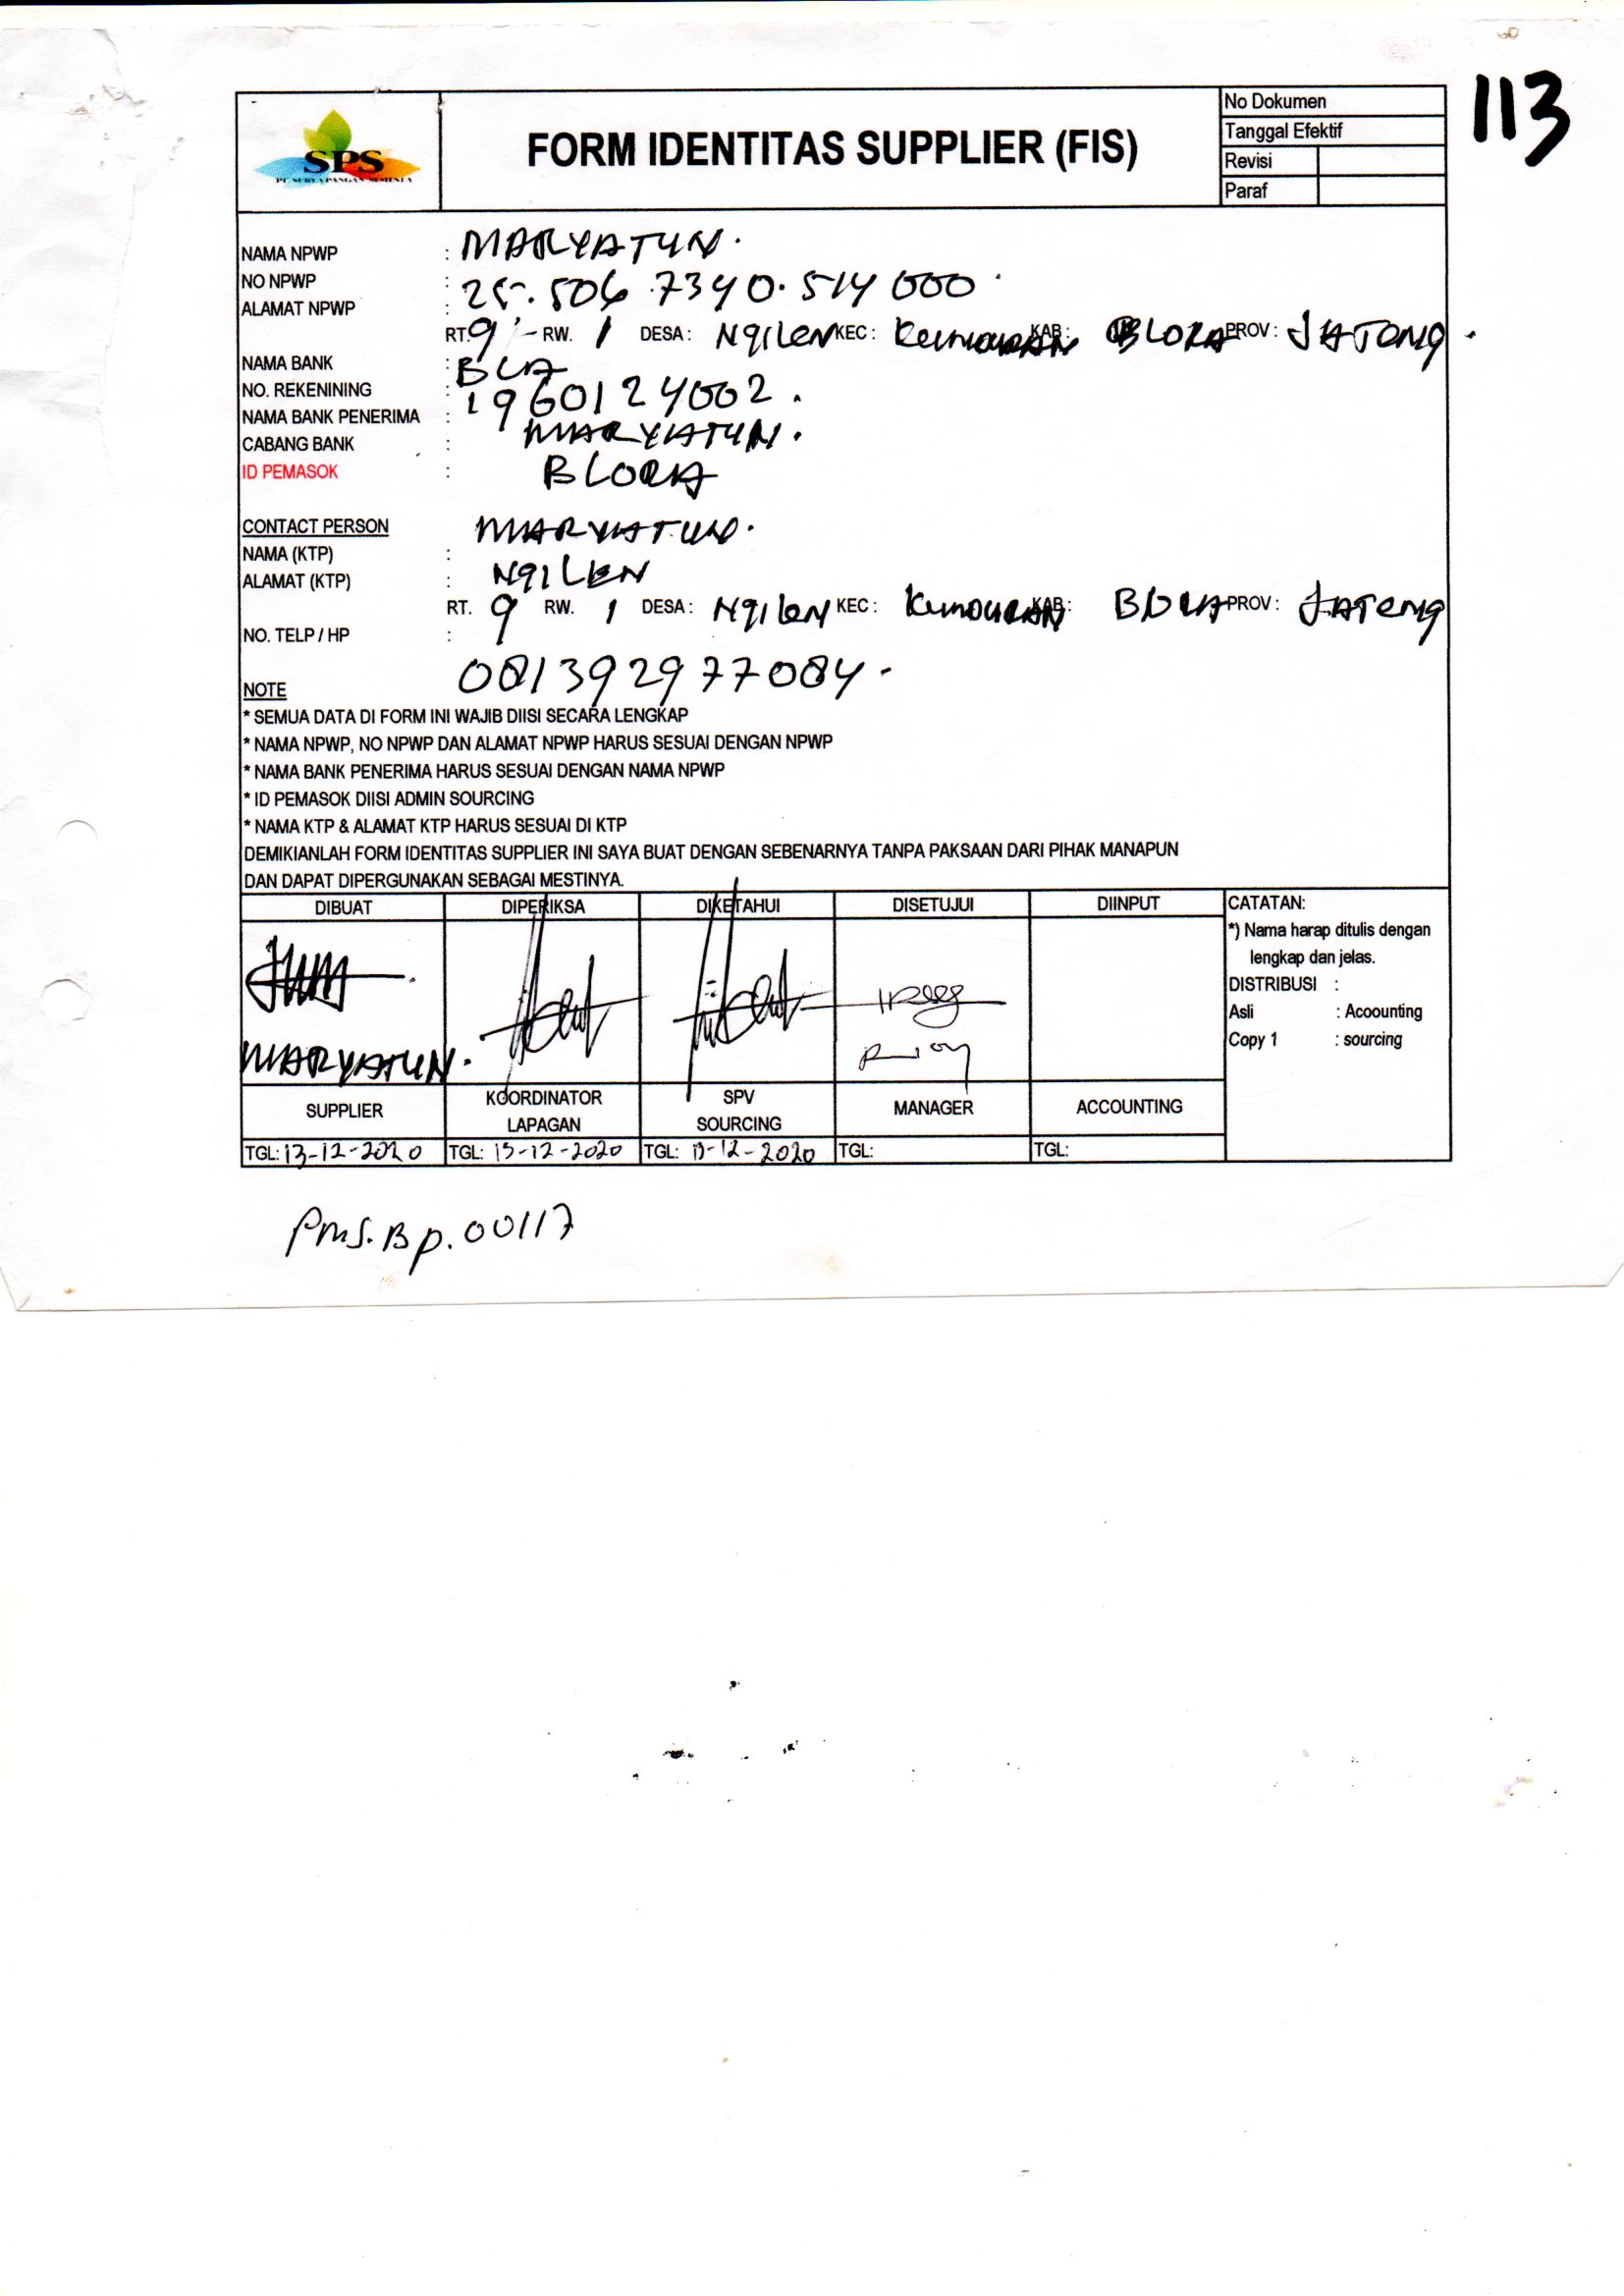 113
SPS
PT. SURYA PANGAN SEMESTA
FORM IDENTITAS SUPPLIER (FIS)
No Dokumen
Tanggal Efektif
Revisi
Paraf
NAMA NPWP : MARYATUN.
NO NPWP : 25.506.7340.514 000
ALAMAT NPWP :
RT. 9 - RW. 1 DESA : NGILEN KEC : KUNDURAN KAB : BLORA PROV : JATENG.
NAMA BANK : BCA
NO. REKENINING : 1960124002.
NAMA BANK PENERIMA : MARYATUN.
CABANG BANK : BLORA
ID PEMASOK :
CONTACT PERSON
NAMA (KTP) : MARYATUN.
ALAMAT (KTP) : NGILEN
RT. 9 RW. 1 DESA : NGILEN KEC : KUNDURAN KAB : BLORA PROV : JATENG
NO. TELP / HP : 081392977084.
NOTE
* SEMUA DATA DI FORM INI WAJIB DIISI SECARA LENGKAP
* NAMA NPWP, NO NPWP DAN ALAMAT NPWP HARUS SESUAI DENGAN NPWP
* NAMA BANK PENERIMA HARUS SESUAI DENGAN NAMA NPWP
* ID PEMASOK DIISI ADMIN SOURCING
* NAMA KTP & ALAMAT KTP HARUS SESUAI DI KTP
DEMIKIANLAH FORM IDENTITAS SUPPLIER INI SAYA BUAT DENGAN SEBENARNYA TANPA PAKSAAN DARI PIHAK MANAPUN
DAN DAPAT DIPERGUNAKAN SEBAGAI MESTINYA.
DIBUAT DIPERIKSA DIKETAHUI DISETUJUI DIINPUT
MARYATUN.
SUPPLIER KOORDINATOR LAPAGAN SPV SOURCING MANAGER ACCOUNTING
TGL: 13-12-2020 TGL: 13-12-2020 TGL: 13-12-2020 TGL: TGL:
CATATAN:
*) Nama harap ditulis dengan
lengkap dan jelas.
DISTRIBUSI :
Asli : Acoounting
Copy 1 : sourcing
PMS.BP.00117